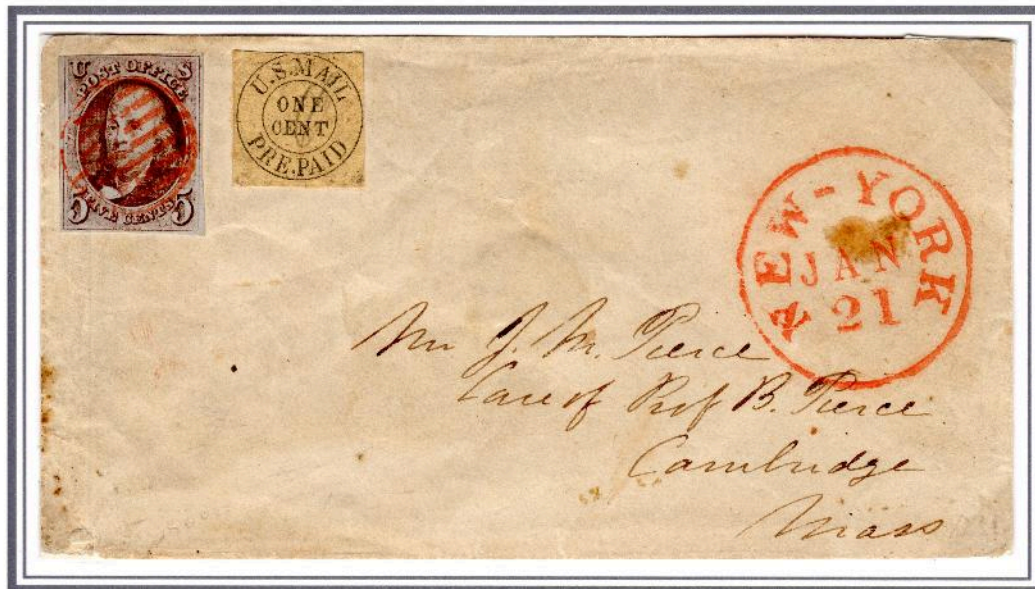 U S
POST OFFICE
FIVE CENTS
5 5
U.S.MAIL
ONE
CENT
PRE.PAID
NEW-YORK
JAN
21
Mr J. M. Pierce
Care of Prof B. Pierce
Cambridge
Mass